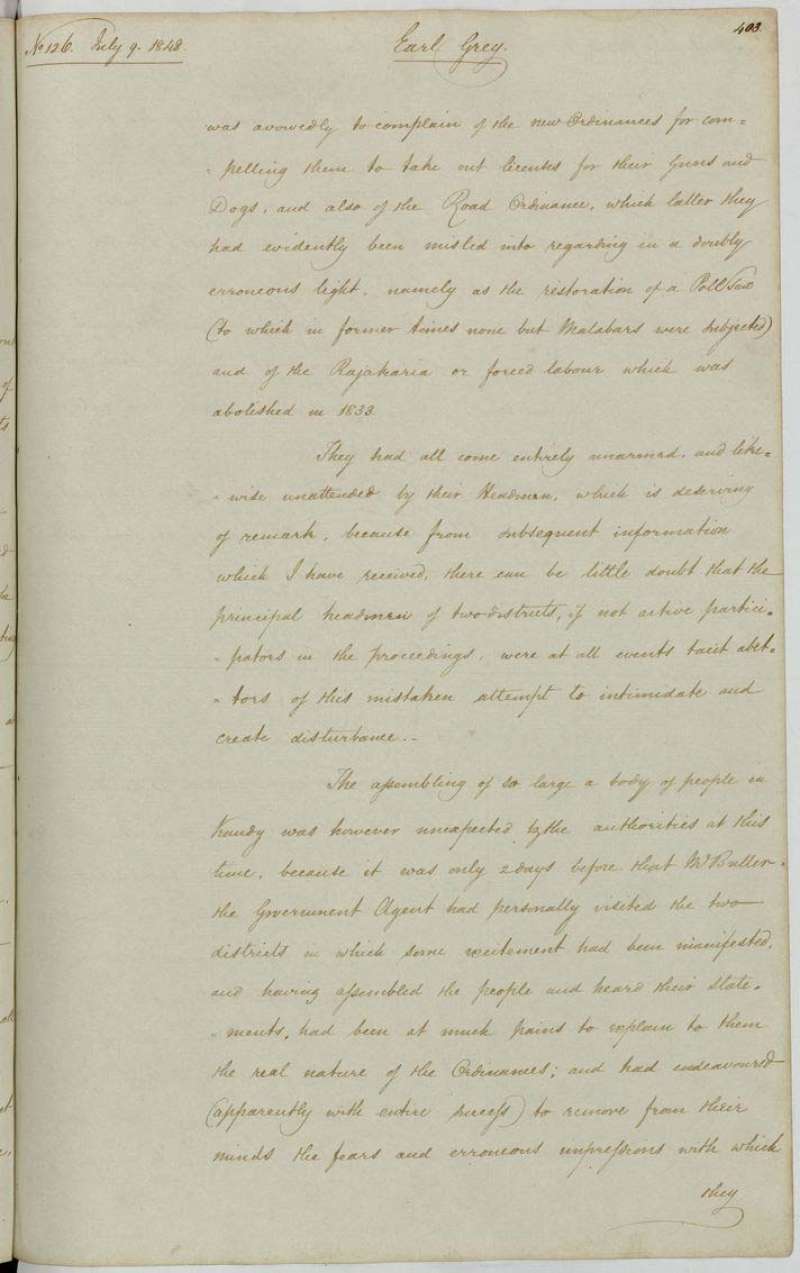 No 126. July 9. 1848.
Earl Grey.
403
was avowedly to complain of the new Ordinances for com=
- pelling them to take out licenses for their Guns and
Dogs, and also of the Road Ordinance, which latter they
had evidently been misled into regarding in a doubly
erroneous light, namely as the restoration of a Poll Tax
(to which in former times none but Malabars were subjected)
and of the Rajakaria or forced labour which was
abolished in 1833.
They had all come entirely unarmed, and like=
- wise unattended by their Headmen, which is deserving
of remark, because from subsequent information
which I have received, there can be little doubt that the
principal headmen of two districts, if not active partici=
- pators in the proceedings, were at all events tacit abet=
- tors of this mistaken attempt to intimidate and
create disturbance. -
The assembling of so large a body of people in
Kandy was however unexpected by the authorities at this
time, because it was only 2 days before that Mr Buller
the Government Agent had personally visited the two
districts in which some excitement had been manifested,
and having assembled the people and heard their state=
- ments, had been at much pains to explain to them
the real nature of the Ordinances; and had endeavoured
(apparently with entire success) to remove from their
minds the fears and erroneous impressions with which
they